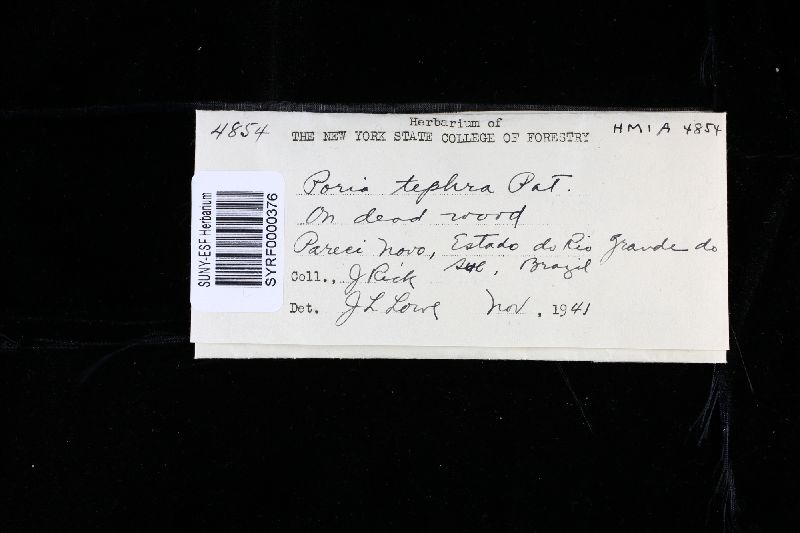 4854
Herbarium of
THE NEW YORK STATE COLLEGE OF FORESTRY
HMIA 4854
Poria tephra Pat.
On dead wood
Pareci Novo, Estado do Rio Grande do
Sul, Brazil
Coll., J Rick
Det. J L Lowe Nov, 1941
SUNY-ESF Herbarium
SYRF0000376